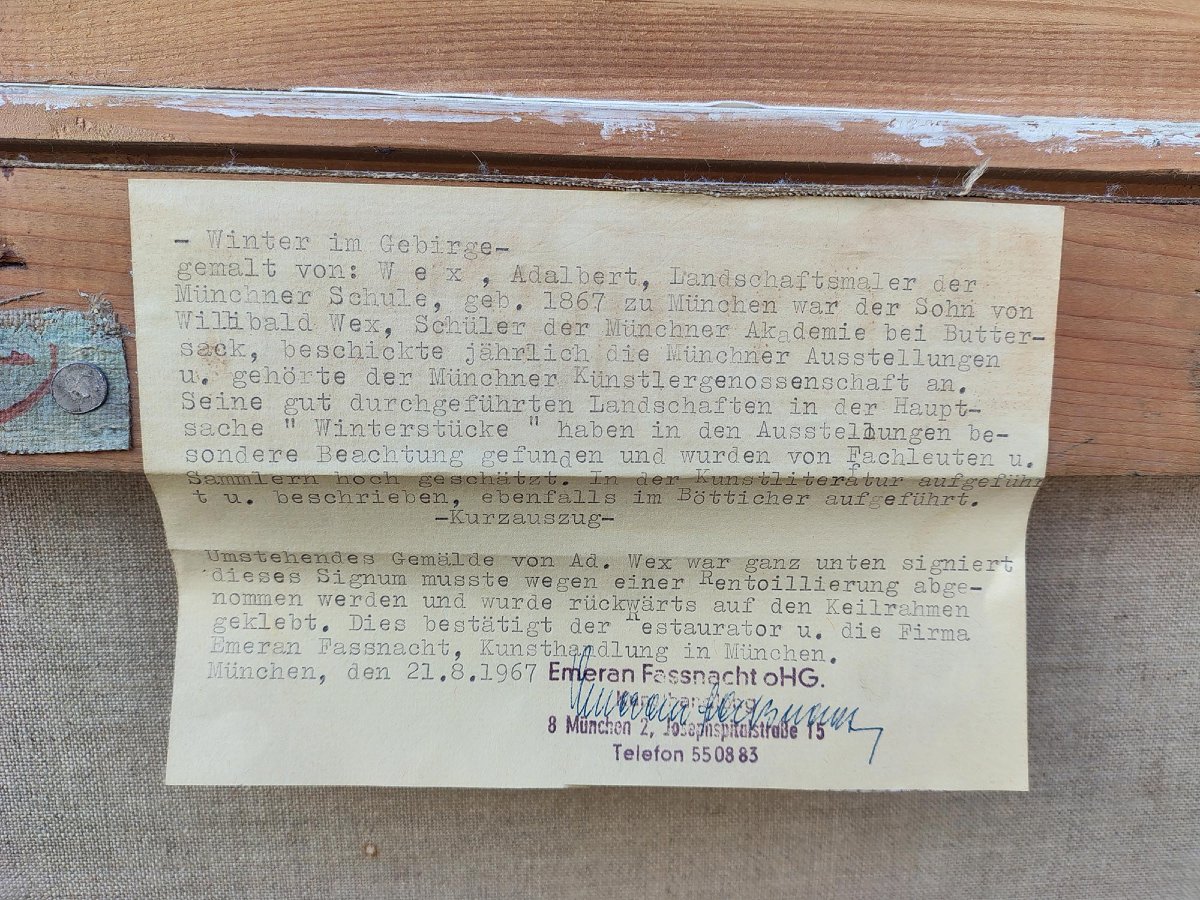 - Winter im Gebirge-
gemalt von: W e x , Adalbert, Landschaftsmaler der
Münchner Schule, geb. 1867 zu München war der Sohn von
Willibald Wex, Schüler der Münchner Akademie bei Butter-
sack, beschickte jährlich die Münchner Ausstellungen
u. gehörte der Münchner Künstlergenossenschaft an.
Seine gut durchgeführten Landschaften in der Haupt-
sache " Winterstücke " haben in den Ausstellungen be-
sondere Beachtung gefunden und wurden von Fachleuten u.
Sammlern hoch geschätzt. In der Kunstliteratur aufgeführ
t u. beschrieben, ebenfalls im Bötticher aufgeführt.
-Kurzauszug-
Umstehendes Gemälde von Ad. Wex war ganz unten signiert
dieses Signum musste wegen einer Rentoillierung abge-
nommen werden und wurde rückwärts auf den Keilrahmen
geklebt. Dies bestätigt der Restaurator u. die Firma
Emeran Fassnacht, Kunsthandlung in München.
München, den 21.8.1967 Emeran Fassnacht oHG.
Kunsthandlung
8 München 2, Josephspitalstraße 15
Telefon 550883